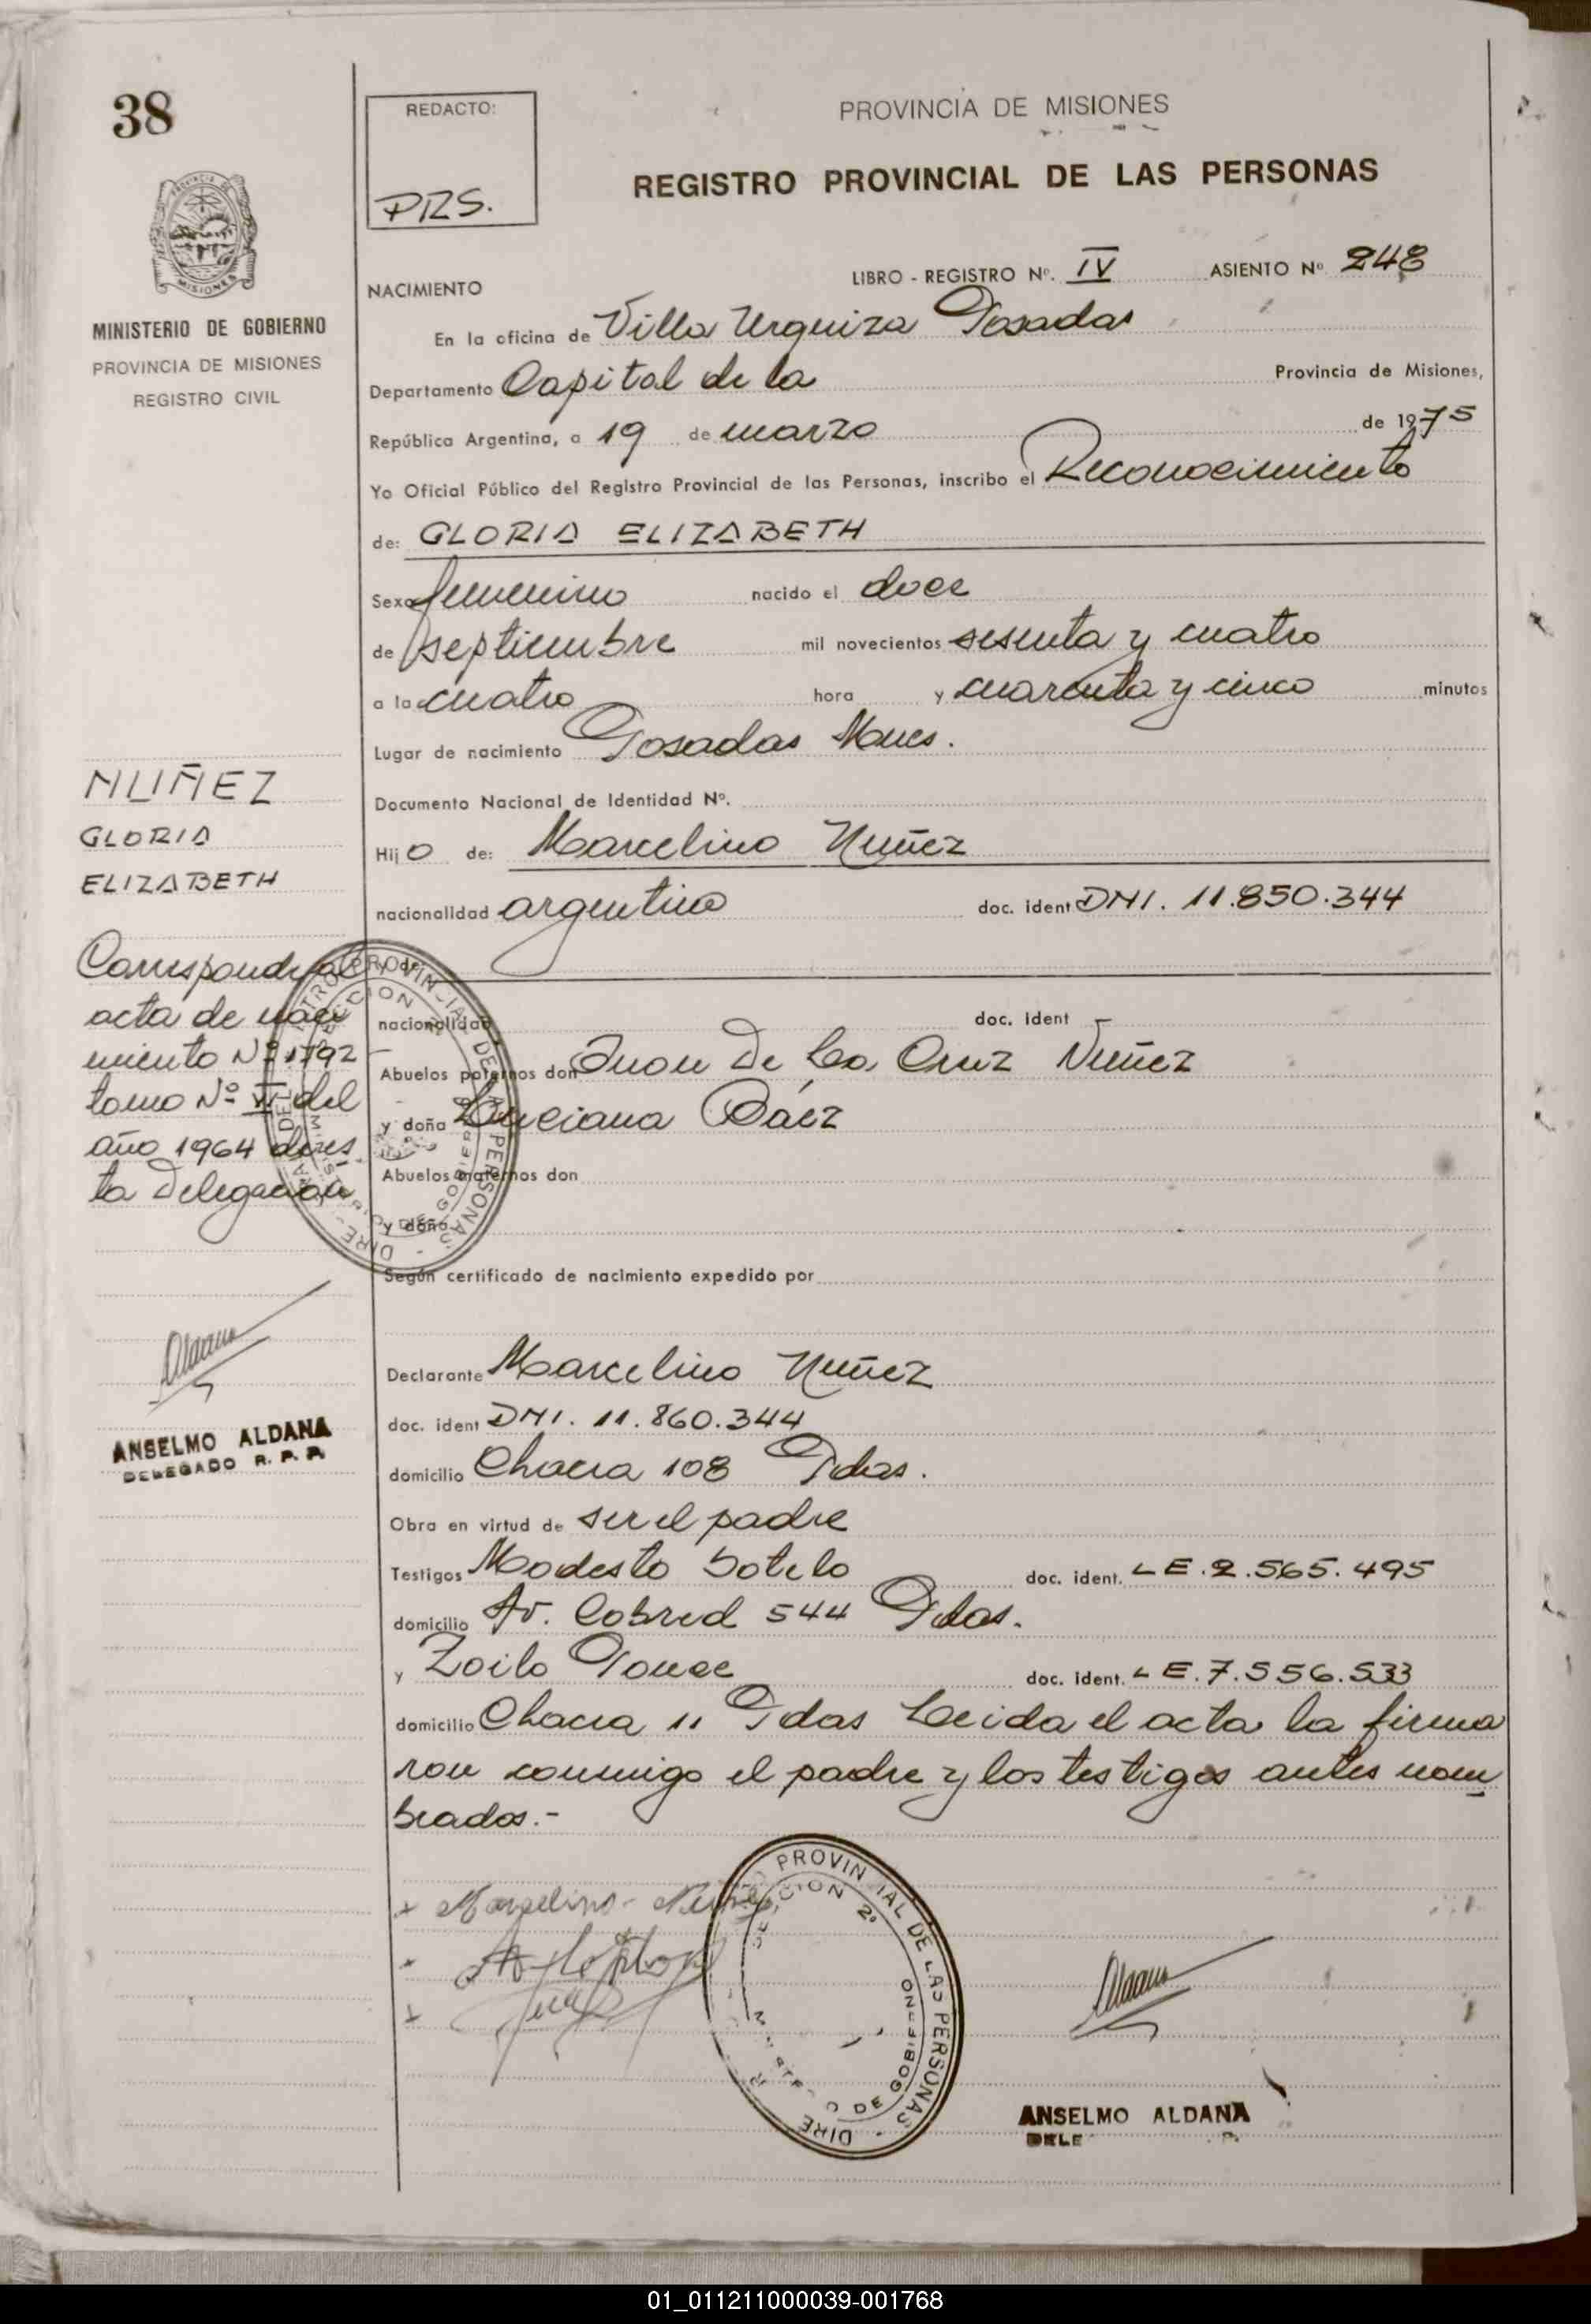 38
REDACTO:
PRS.
PROVINCIA DE MISIONES
REGISTRO PROVINCIAL DE LAS PERSONAS
MISIONES
MINISTERIO DE GOBIERNO
PROVINCIA DE MISIONES
REGISTRO CIVIL
NACIMIENTO
LIBRO - REGISTRO Nº. IV ASIENTO Nº 248
En la oficina de Villa Urquiza Posadas
Departamento Capital de la Provincia de Misiones,
República Argentina, a 19 de marzo de 1975
Yo Oficial Público del Registro Provincial de las Personas, inscribo el Reconocimiento
de: GLORIA ELIZABETH
Sexo femenino nacido el doce
de septiembre mil novecientos sesenta y cuatro
a la cuatro hora y cuarenta y cinco minutos
Lugar de nacimiento Posadas Mnes.
Documento Nacional de Identidad Nº.
Hijo de: Marcelino Nuñez
nacionalidad argentino doc. ident DNI. 11.850.344
y de
nacionalidad doc. ident —
Abuelos paternos don Juan De La Cruz Nuñez
y doña Luciana Báez
Abuelos maternos don
y doña
Según certificado de nacimiento expedido por
Declarante Marcelino Nuñez
doc. ident DNI. 11.860.344
domicilio Chacra 108 Pdas.
Obra en virtud de ser el padre
Testigos Modesto Sotelo doc. ident. LE.2.565.495
domicilio Av. Cabred 544 Pdas.
y Zoilo Ponce doc. ident. LE.7.556.533
domicilio Chacra 11 Pdas Leida el acta la firma
ron conmigo el padre y los testigos antes nom
brados.-
NUÑEZ
GLORIA
ELIZABETH
Corresponde al
acta de naci
miento Nº 1792
tomo Nº VI del
año 1964 de es
ta Delegación
Aldana
ANSELMO ALDANA
DELEGADO R. P. P.
Marcelino - Nuñez
PROVINCIAL DE LAS PERSONAS
2ª
DE GOBIERNO
Aldana
ANSELMO ALDANA
DELE
01_011211000039-001768